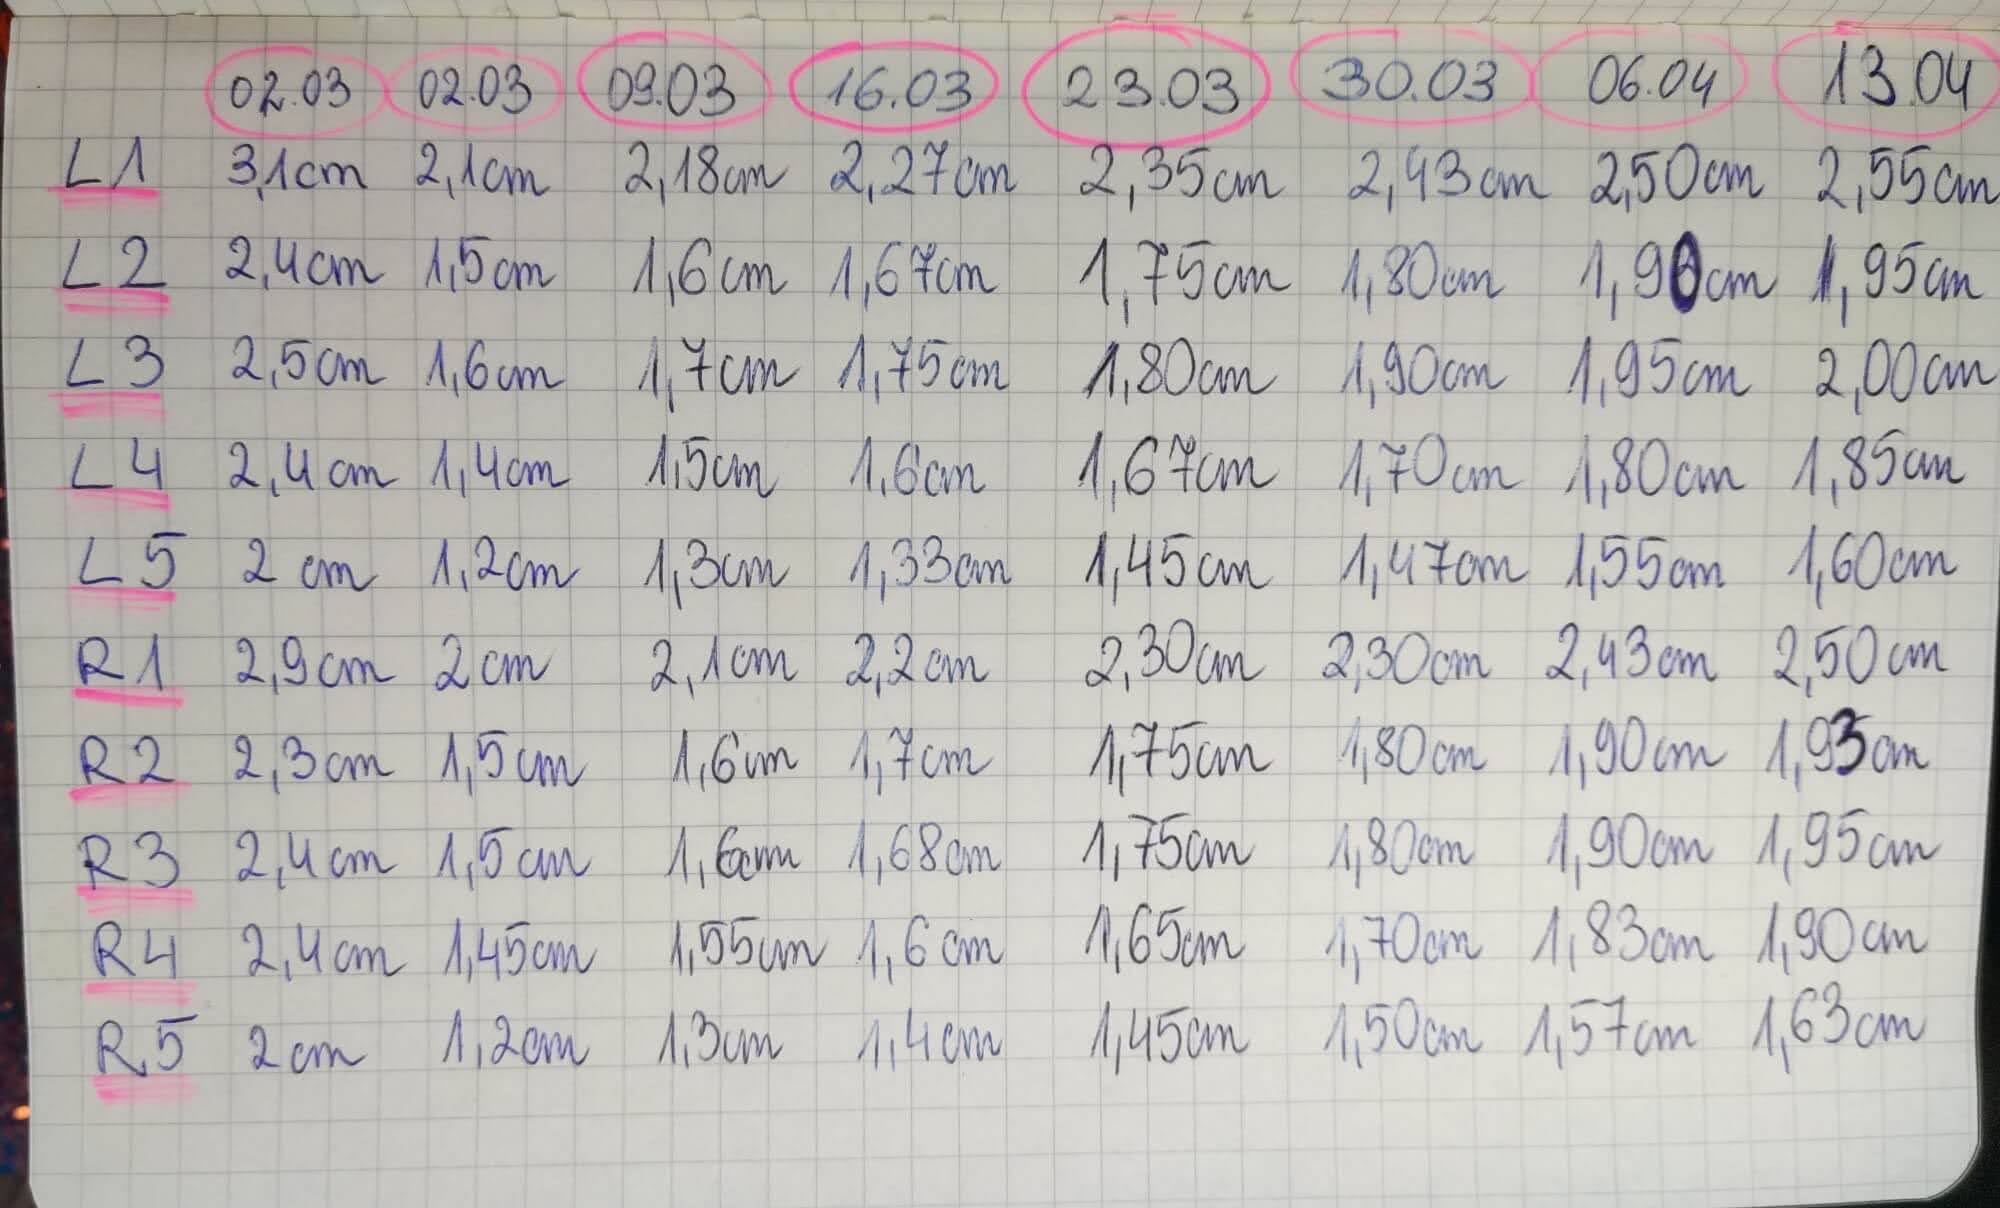 02.03 02.03 09.03 16.03 23.03 30.03 06.04 13.04
L1 3,1cm 2,1cm 2,18cm 2,27cm 2,35cm 2,43cm 2,50cm 2,55cm
L2 2,4cm 1,5cm 1,6cm 1,67cm 1,75cm 1,80cm 1,90cm 1,95cm
L3 2,5cm 1,6cm 1,7cm 1,75cm 1,80cm 1,90cm 1,95cm 2,00cm
L4 2,4cm 1,4cm 1,5cm 1,6cm 1,67cm 1,70cm 1,80cm 1,85cm
L5 2 cm 1,2cm 1,3cm 1,33cm 1,45cm 1,47cm 1,55cm 1,60cm
R1 2,9cm 2cm 2,1cm 2,2cm 2,30cm 2,30cm 2,43cm 2,50cm
R2 2,3cm 1,5cm 1,6cm 1,7cm 1,75cm 1,80cm 1,90cm 1,93cm
R3 2,4cm 1,5cm 1,6cm 1,68cm 1,75cm 1,80cm 1,90cm 1,95cm
R4 2,4cm 1,45cm 1,55cm 1,6cm 1,65cm 1,70cm 1,83cm 1,90cm
R5 2cm 1,2cm 1,3cm 1,4cm 1,45cm 1,50cm 1,57cm 1,63cm